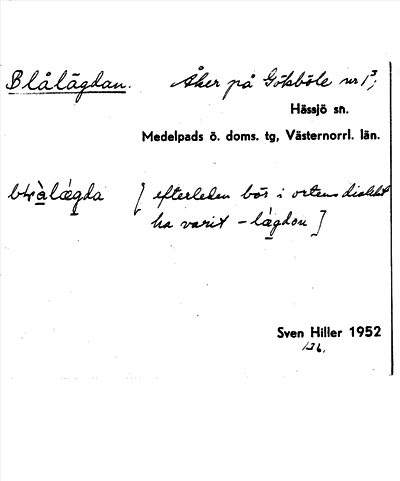 Blålägdan. Åker på Gökböle nr 1³;
Hässjö sn.
Medelpads ö. doms. tg, Västernorrl. län.
[ efterleden bör i ortens dialekt
ha varit – lä́gdon ]
Sven Hiller 1952